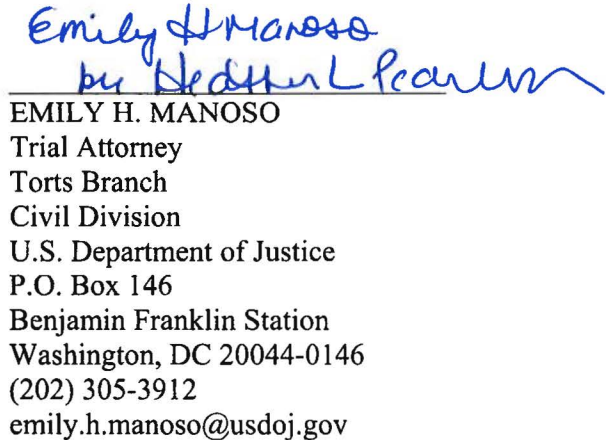 Emily H Manoso
by Heather L Pearlman
EMILY H. MANOSO
Trial Attorney
Torts Branch
Civil Division
U.S. Department of Justice
P.O. Box 146
Benjamin Franklin Station
Washington, DC 20044-0146
(202) 305-3912
emily.h.manoso@usdoj.gov